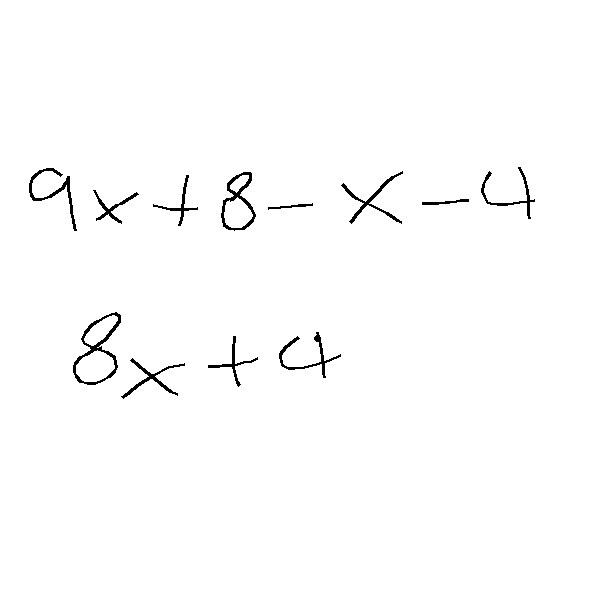 9x + 8 - x - 4
8x + 4